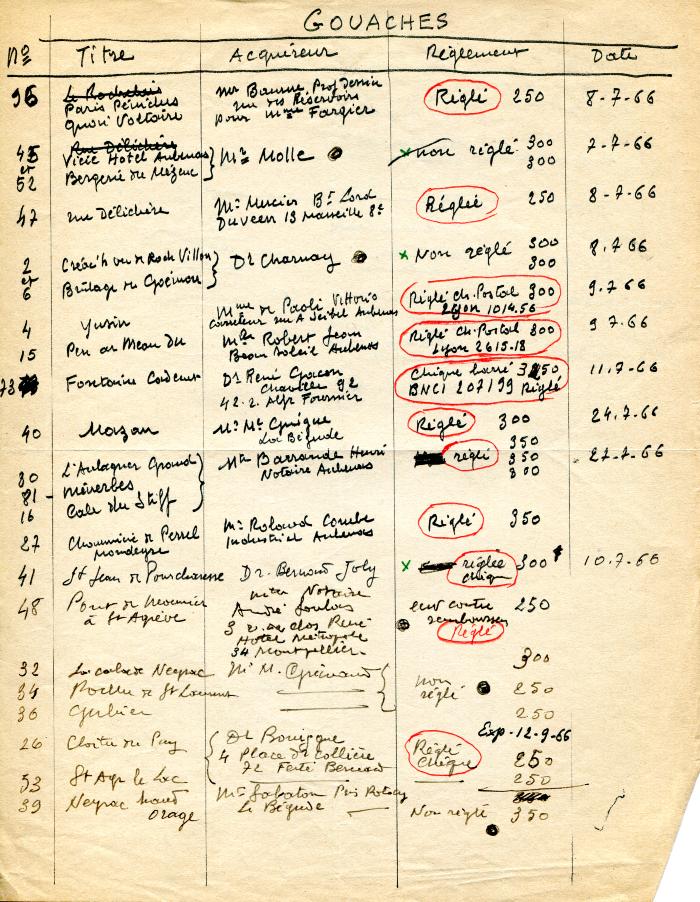 GOUACHES
Nº Titre Acquéreur Réglement Date
95 Le Rochelais Mr Baume Prof Dessin Réglé 250 8-7-66
Paris Péniches rue des Réservoirs
Quai Voltaire pour Mme Fargier
45 Rue Délichère
et Vieil Hotel Aubenas Mr Molle non réglé 300 7-7-66
52 Bergerie du Mézenc 300
47 rue Délichère Mr Mercier Bd Lord Réglé 250 8-7-66
Duveen 13 Marseille 8e
2 Dr Charnay Non réglé 300 8.7.66
et Brûlage du Goémon 300
6
4 Mme de Paoli Vittorio Réglé Ch. Postal 300 9.7-66
Aubenas Lyon 1014.56
15 Pen ar Mr Robert Jean Réglé Ch. Postal 300 9 7-66
Beau Soleil Aubenas Lyon 2615-18
73 Fontaine Dr René Chèque barré 350 11.7-66
Chaville 92 BNCI 207199 Réglé
42. r. Alfr Fournier
40 Mazan Mr Mt Réglé 300 24.7-66
La Bégude
80 Mtre Barrande Henri réglé 350 27-7-66
81 - Notaire Aubenas 350
16 Cale du Stiff 300
27 Chaumière de Mr Roland Combe Réglé 350
Industriel Aubenas
41 St Jean de Pourcharesse Dr. Bernard Joly réglée 300 10.7-66
chèque
48 Pont de Notaire env contre 250
à St Agrève André remboursem
3 r. du clos René Réglé
Hotel Métropole
34 Montpellier 300
32 Neyrac Mr M. non 250
34 Roche de St Laurent réglé
36 Gerbier 250
Exp-12-9-66
26 Cloitre du Puy Dr Réglé 250
4 Place Chèque
72 Ferté Bernard 250
53 St Agr le Lac
39 Neyrac Mr Sabaton Non réglé 350
orage La Bégude